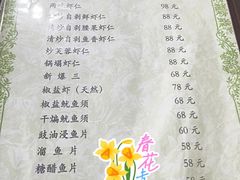 两吃虾仁 98元
清炒自剥鲜虾仁 88元
清炒自剥腰果虾仁 88元
清炒自剥鱼香虾仁 88元
炒芙蓉虾仁 88元
锅塌虾仁 88元
新爆三 68元
椒盐虾(天然) 78元
椒盐鱿鱼须 60元
干煸鱿鱼须 60元
豉油浸鱼片 60元
溜鱼片 58元
糖醋鱼片 58元
58元
春花